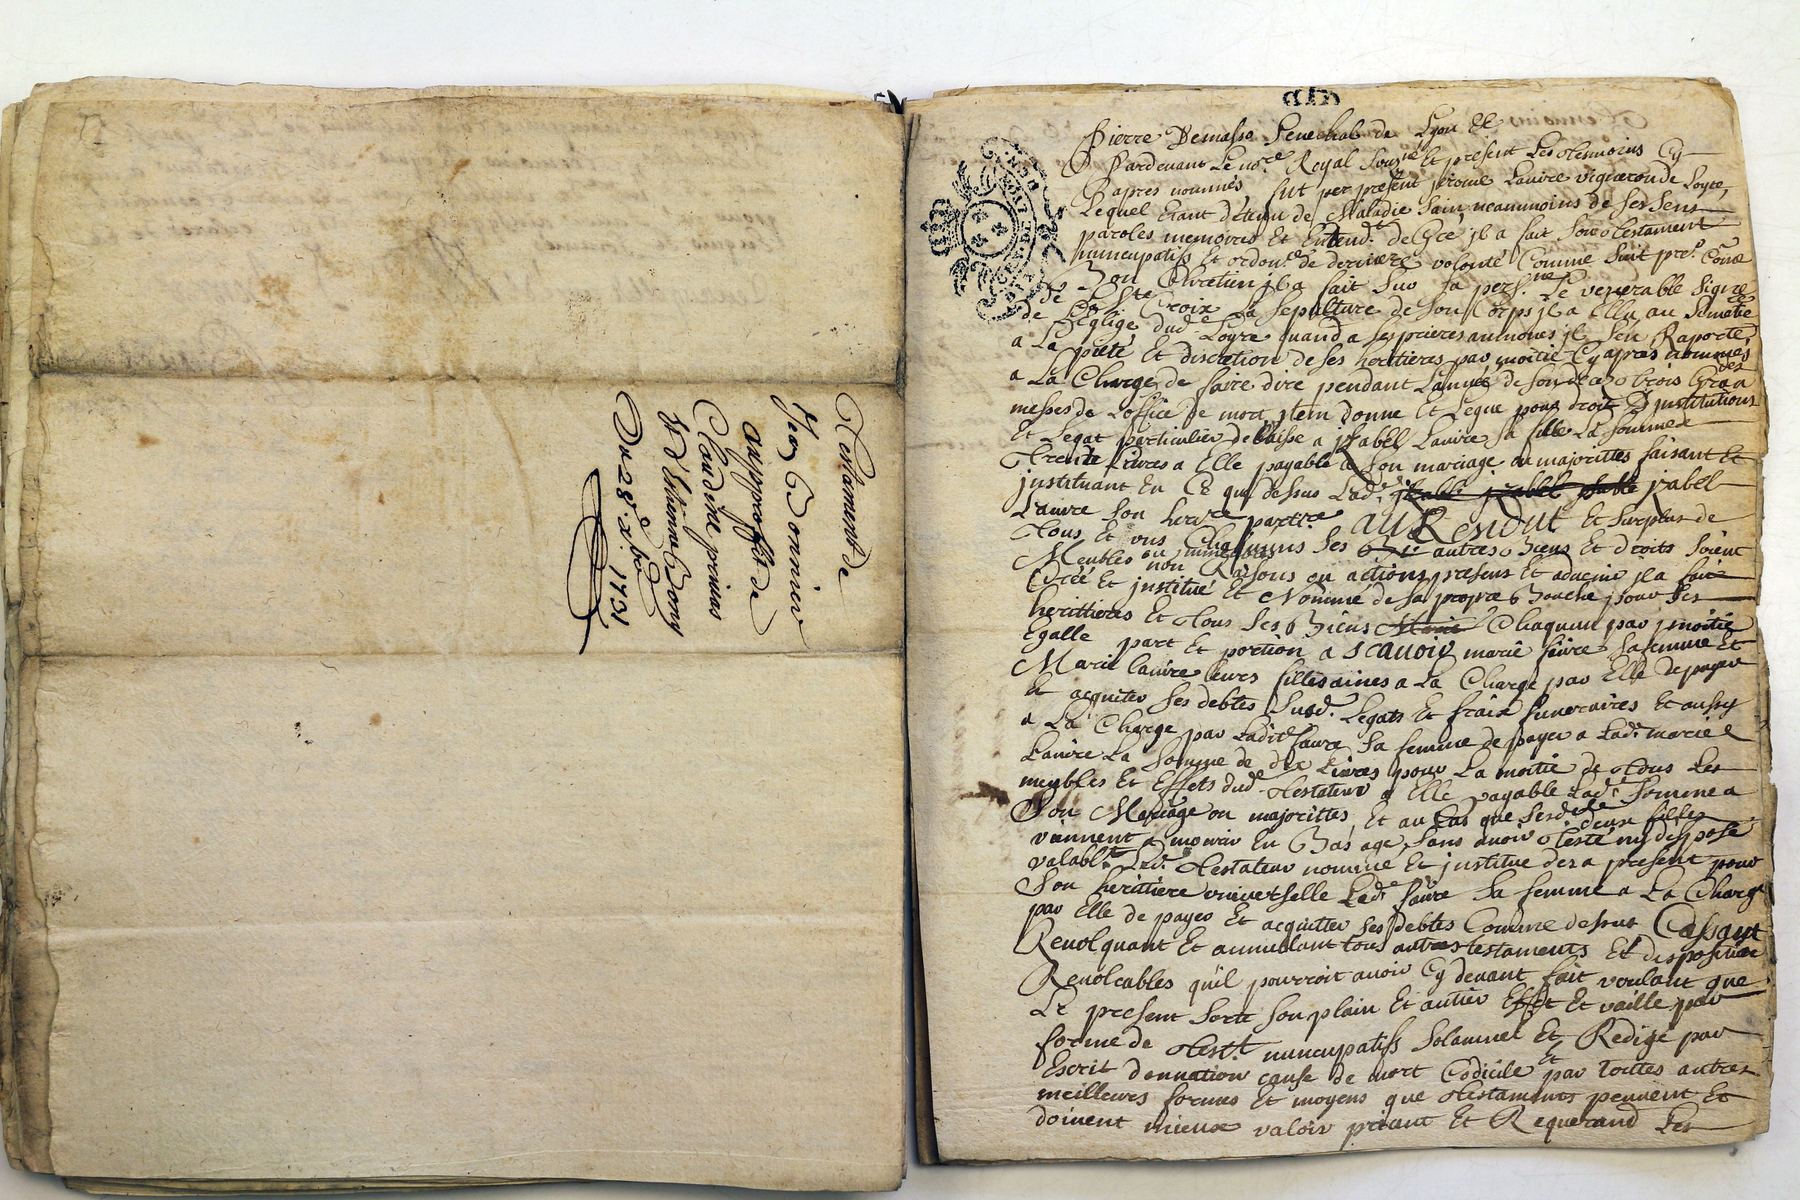 Testament de
Jean Bonnier
au proffit de
Claudine primas
Et d'Etienne Bony
Du 28e. xbre. 1731
Pierre Demasso Senechal de Lyon &c
Pardevant Le nore. Royal Sousné Et present Les tesmoins Cy
apres nommés fut per present jerome Lauire vigneron de Loyre
Lequel Etant détenu de Maladie Sain neanmoins de ses Sens
paroles memoires Et Entendt. de Gré jl a fait Son testament
nuncupatifs Et ordonce. de derniere volonté Comme Suit pre. Come
Bon Chretien jl a fait Sur Sa persne. Le venerable Signe
de La Ste Croix La Sepulture de Son Corps jl a Ellu au Simetie
de L'Eglise dud. Loyre quand a Ses prieres aumones jl S'en Raporte
a La pieté Et discretion de ses heritieres par moitié Cy apres nommés
a La Charge de faire dire pendant L'année de Son déces trois Grandes
messes de L'office de mort jtem donne Et Legue pour droit D'jnstitutions
Et Legat particulier delaisse a jsabel Lauire Sa fille La Somme de
Trente Livres a Elle payable a Son mariage ou majorittes faisant Et
jnstituant En Ce que dessus Lade. jzabel
Lauire Son herre. partre. AU Residut Et Surplus de
Tous Et uns Chaquuns Ses autres Biens Et droits Soient
Meubles ou jmmeubles non Raisons ou actions presens Et advenir jl a fait
Créé Et jnstitué Et Nommé de Sa propre Bouche pour Ses
herittieres Et Tous Ses Biens Chaquun par moitié
Egalle part Et portion a scauoir marie faure Sa femme Et
Marie lauire leurs filles aines a La Charge par Elle de payer
Et acquiter Ses debtes Susd. Legats Et fraix funeraires Et aussy
a La Charge par Ladite faure Sa femme de payer a Lade. marie
Lauire La Somme de dix Livres pour La moitié de Tous Les
meubles Et Effets dud. Testateur a Elle payable Lade. Somme a
Son Mariage ou majorittes, Et au Cas que Sesdites deux filles
viennent a mourir En Bas age Sans avoir Testé ny disposé
valablt. Led. Testateur nomme Et jnstitue des a present pour
Son heritiere universelle Lade. faure Sa femme a La Charge
par Elle de payer Et acquitter Ses debtes Comme dessus Cassant
Revolquant Et annullant tous autres testaments Et disposition
Revolcables qu'il pourroit avoir Cy devant fait voulant que
Le present Sorte Son plain Et antier Effet Et vaille par
forme de Testt. nuncupatifs Solannel Et Redigé par
Escrit donnation cause de mort Codicile Et par toutes autres
meilleures formes Et moyens que testaments peuvent Et
doivent mieux valoir priant Et Requerand Les